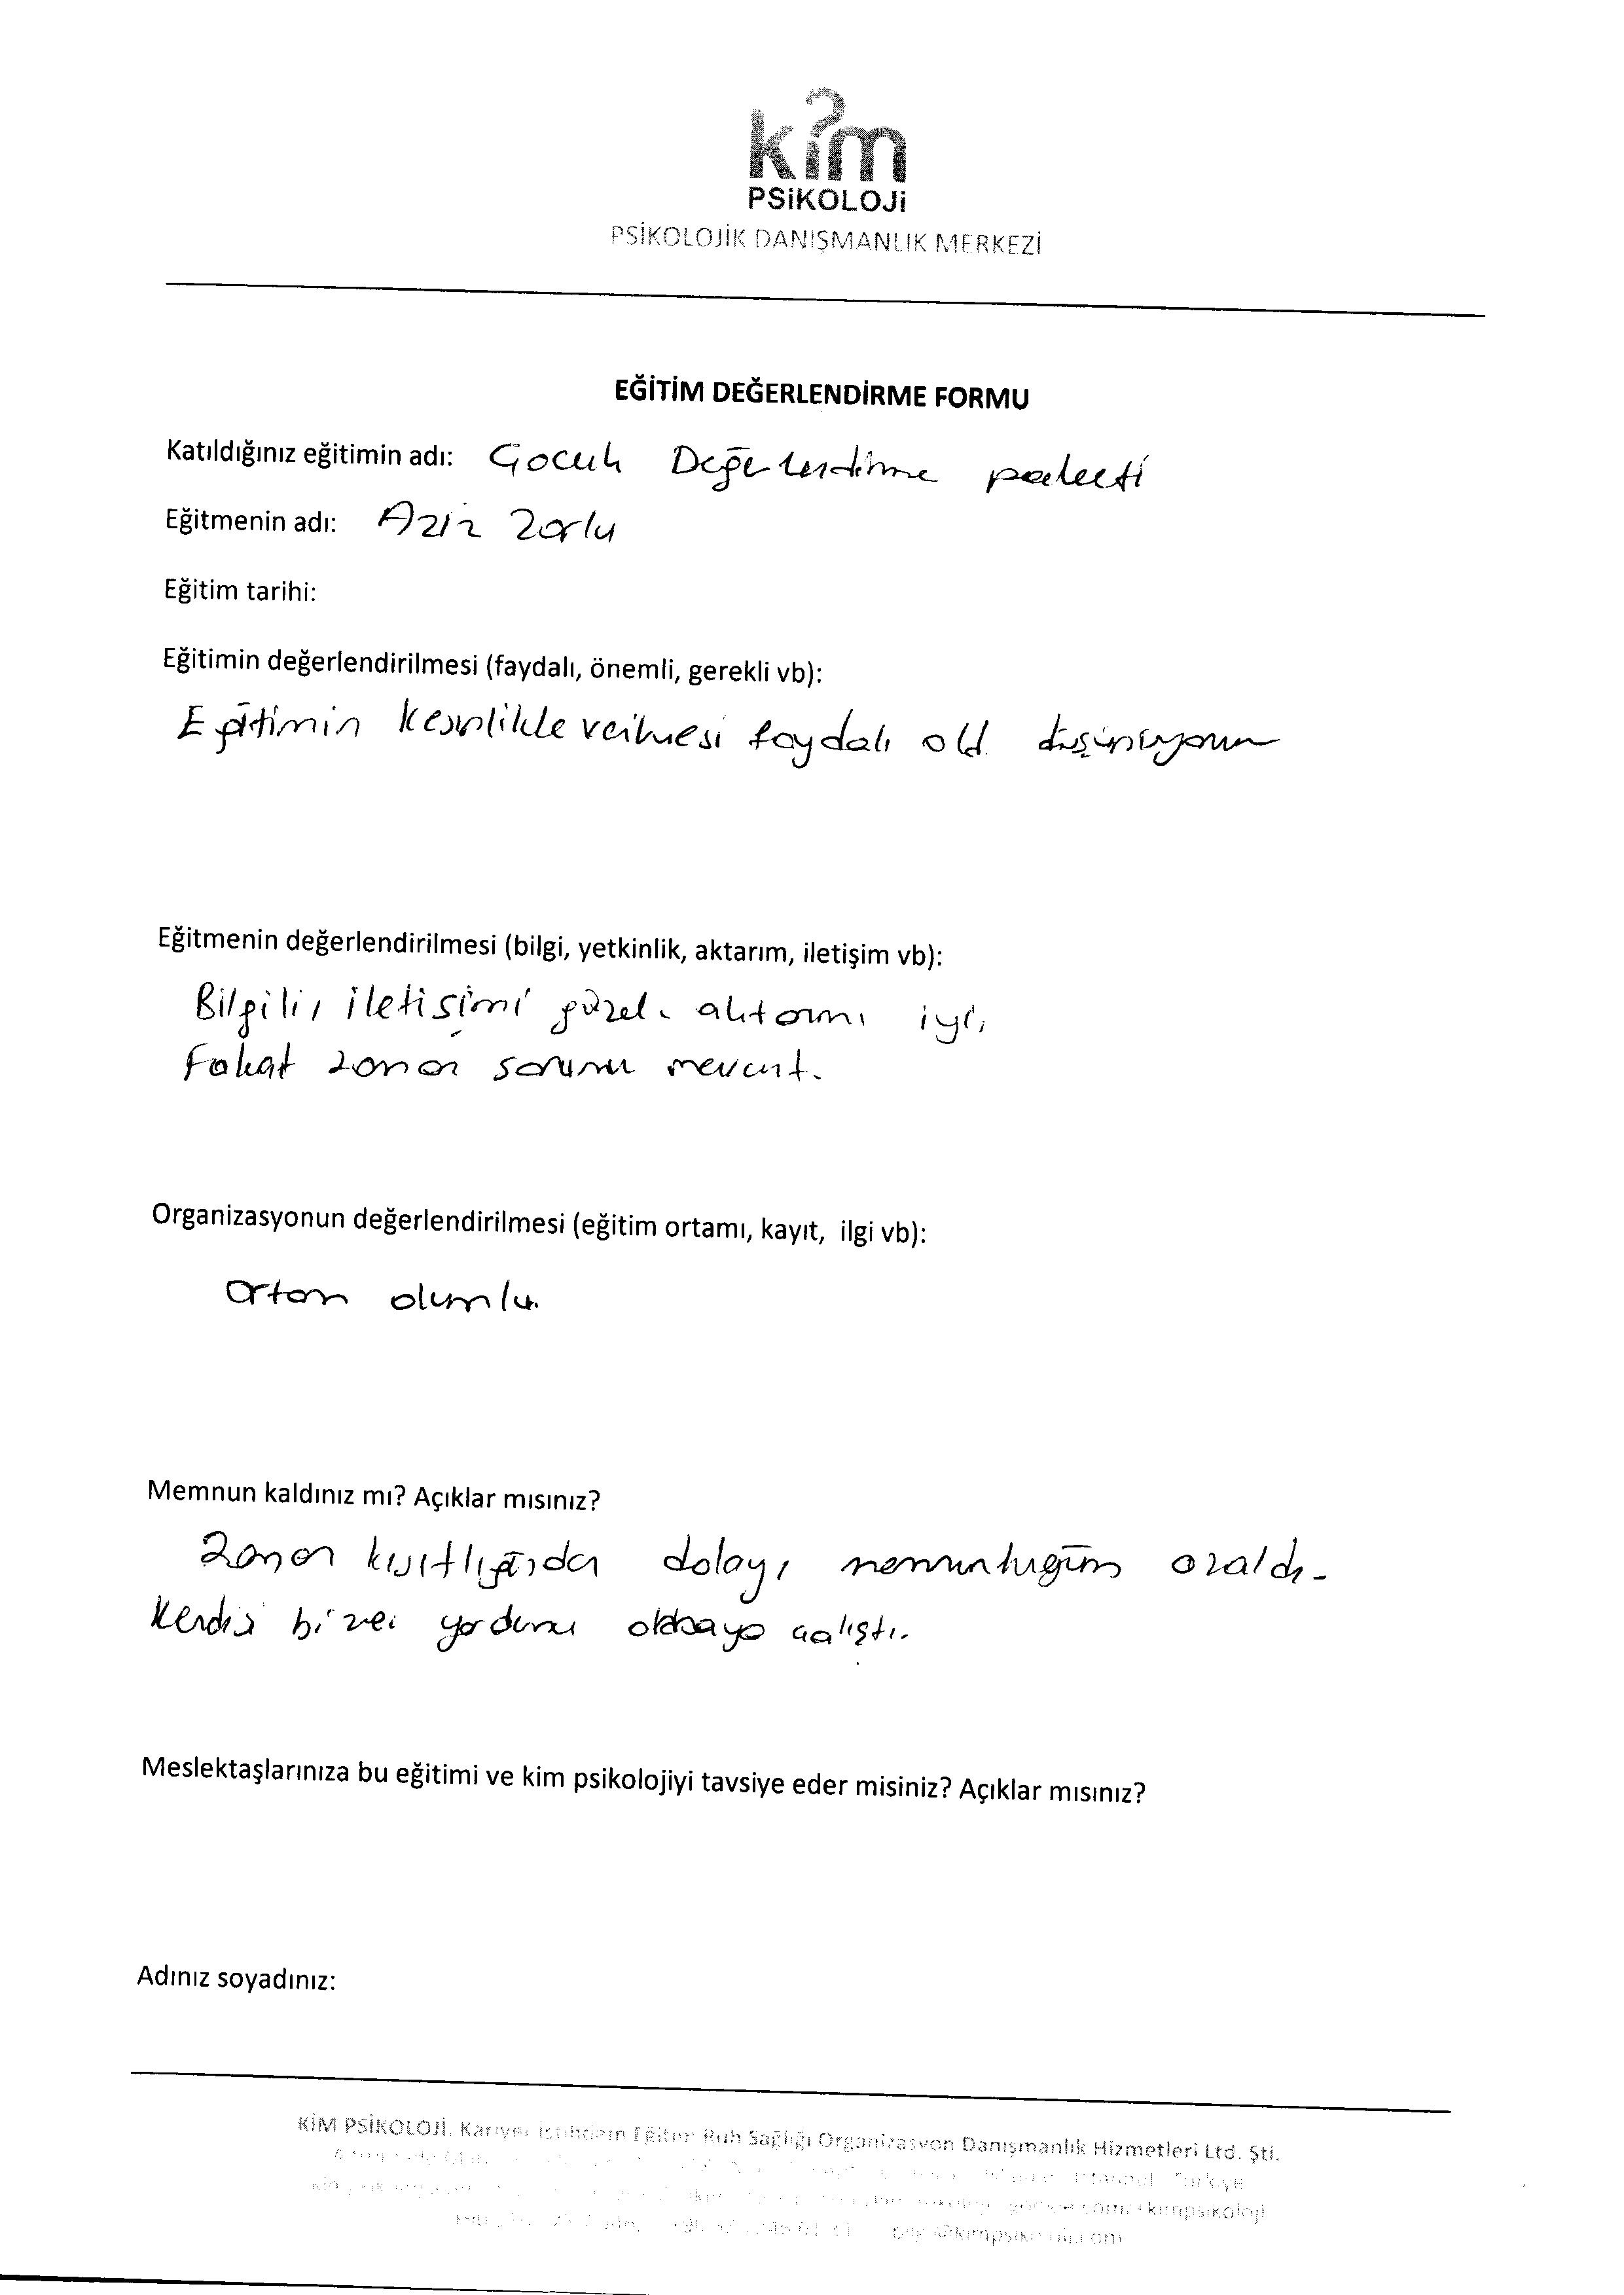 kim
PSiKOLOJi
PSİKOLOJİK DANIŞMANLIK MERKEZİ
EĞİTİM DEĞERLENDİRME FORMU
Katıldığınız eğitimin adı: Çocuk Değerlendirme paketi
Eğitmenin adı: Aziz Zorlu
Eğitim tarihi:
Eğitimin değerlendirilmesi (faydalı, önemli, gerekli vb):
Eğitimin kesinlikle verilmesi faydalı old. düşünüyorum
Eğitmenin değerlendirilmesi (bilgi, yetkinlik, aktarım, iletişim vb):
Bilgili, iletişimi güzel. aktarımı iyi,
Fakat zaman sorunu mevcut.
Organizasyonun değerlendirilmesi (eğitim ortamı, kayıt, ilgi vb):
Ortam olumlu.
Memnun kaldınız mı? Açıklar mısınız?
Zaman kısıtlığından dolayı memnunluğum azaldı-
Kendisi bize yardımcı olmaya çalıştı.
Meslektaşlarınıza bu eğitimi ve kim psikolojiyi tavsiye eder misiniz? Açıklar mısınız?
Adınız soyadınız:
KİM PSİKOLOJİ. Kariyer İstihdam Eğitim Ruh Sağlığı Organizasyon Danışmanlık Hizmetleri Ltd. Şti.